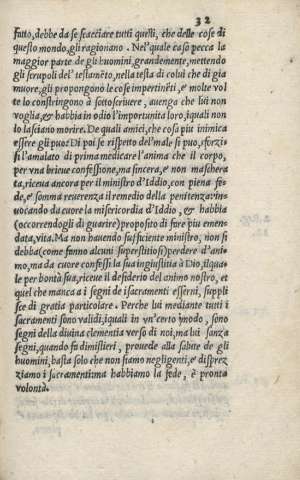 32
futto, debbe da se scacciare tutti questi, che delle cose di
questo mondo, gli ragionano. Nel'quale caso pecca la
maggior parte de gli huomini, grandemente, mettendo
gli scrupoli del' testamẽto, nella testa di colui che di gia
muore, gli propongono le cose impertinẽti, e molte vol
te lo constringono à sottoscriuere, auenga che lui non
voglia, & habbia in odio l'importunita loro, i quali non
lo lasciano morire. De quali amici, che cosa piu inimica
essere gli puo? Di poi se rispetto del'male si puo, sforzi-
si l'amalato di prima medicare l'anima che il corpo,
per vna brieue confessione, ma sincera, e non maschera
ta, riceua ancora per il ministro d'Iddio, con piena fe-
de, e somma reuerenza il remedio della penitenza: in-
uocando da cuore la misericordia d'Iddio, & habbia
(occorrendogli di guarire) proposito di fare piu emen
data, vita. Ma non hauendo sufficiente ministro, non si
debba (come fanno alcuni superstitiosi) perdere d'ani-
mo, ma da cuore confessi la sua ingiustitia à Dio, il qua-
le per bontà sua, riceue il desiderio del animo nostro, et
quel che manca a i segni de i sacramenti esserni, suppli
sce di gratia particolare. Perche lui mediante tutti i
sacramenti sono validi, iquali in vn'certo modo, sono
segni della diuina clemenza verso di noi, ma lui sanza
segni, quando fa dimistieri, prouede alla salute de gli
huomini, basta solo che non siamo negligenti, e disprez
ziamo i sacramenti: ma habbiamo la fede, è pronta
volontà.